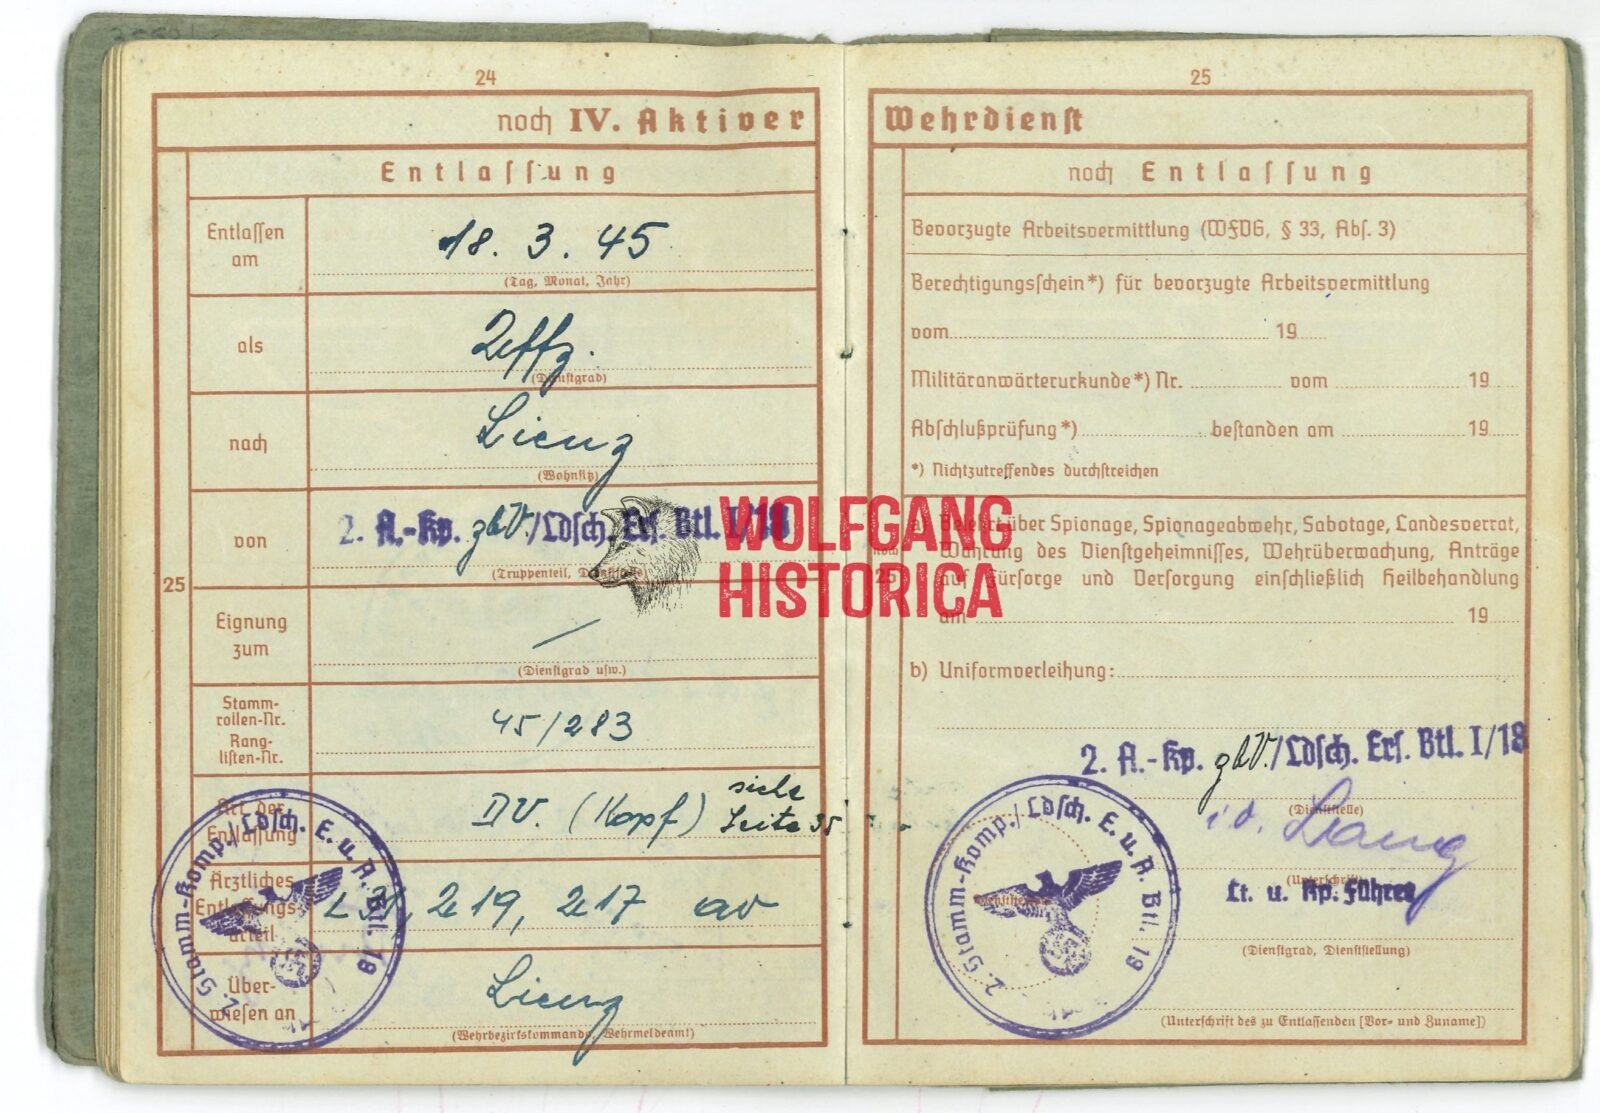 24
noch IV. Aktiver
Entlassung
Entlassen am
18. 3. 45
(Tag, Monat, Jahr)
als
Uffz.
(Dienstgrad)
nach
Lienz
(Wohnsitz)
von
2. A.-Kp. zbV./Ldsch. Ers. Btl. I/18
(Truppenteil, Dienststelle)
25
Eignung zum
(Dienstgrad usw.)
Stamm-
rollen-Nr.
Rang-
listen-Nr.
45/283
Art der
Entlassung
DU. (Kopf) siehe
Seite 35
Ärztliches
Entlassungs-
urteil
L 31, 2e19, 2e17 av
Über-
wiesen an
Lienz
(Wehrbezirkskommando, Wehrmeldeamt)
2. Stamm-Komp./Ldsch. E. u. A. Btl. 18
25
Wehrdienst
noch Entlassung
Bevorzugte Arbeitsvermittlung (WFVG, § 33, Abs. 3)
Berechtigungsschein*) für bevorzugte Arbeitsvermittlung
vom 19
Militäranwärterurkunde*) Nr. vom 19
Abschlußprüfung*) bestanden am 19
*) Nichtzutreffendes durchstreichen
noch
25
a) Belehrt über Spionage, Spionageabwehr, Sabotage, Landesverrat,
Wahrung des Dienstgeheimnisses, Wehrüberwachung, Anträge
auf Fürsorge und Versorgung einschließlich Heilbehandlung
am 19
b) Uniformverleihung:
2. A.-Kp. zbV./Ldsch. Ers. Btl. I/18
(Dienststelle)
(Unterschrift)
Lt. u. Kp. Führer
(Dienstgrad, Dienststellung)
2. Stamm-Komp./Ldsch. E. u. A. Btl. 18
(Unterschrift des zu Entlassenden [Vor- und Zuname])
WOLFGANG
HISTORICA